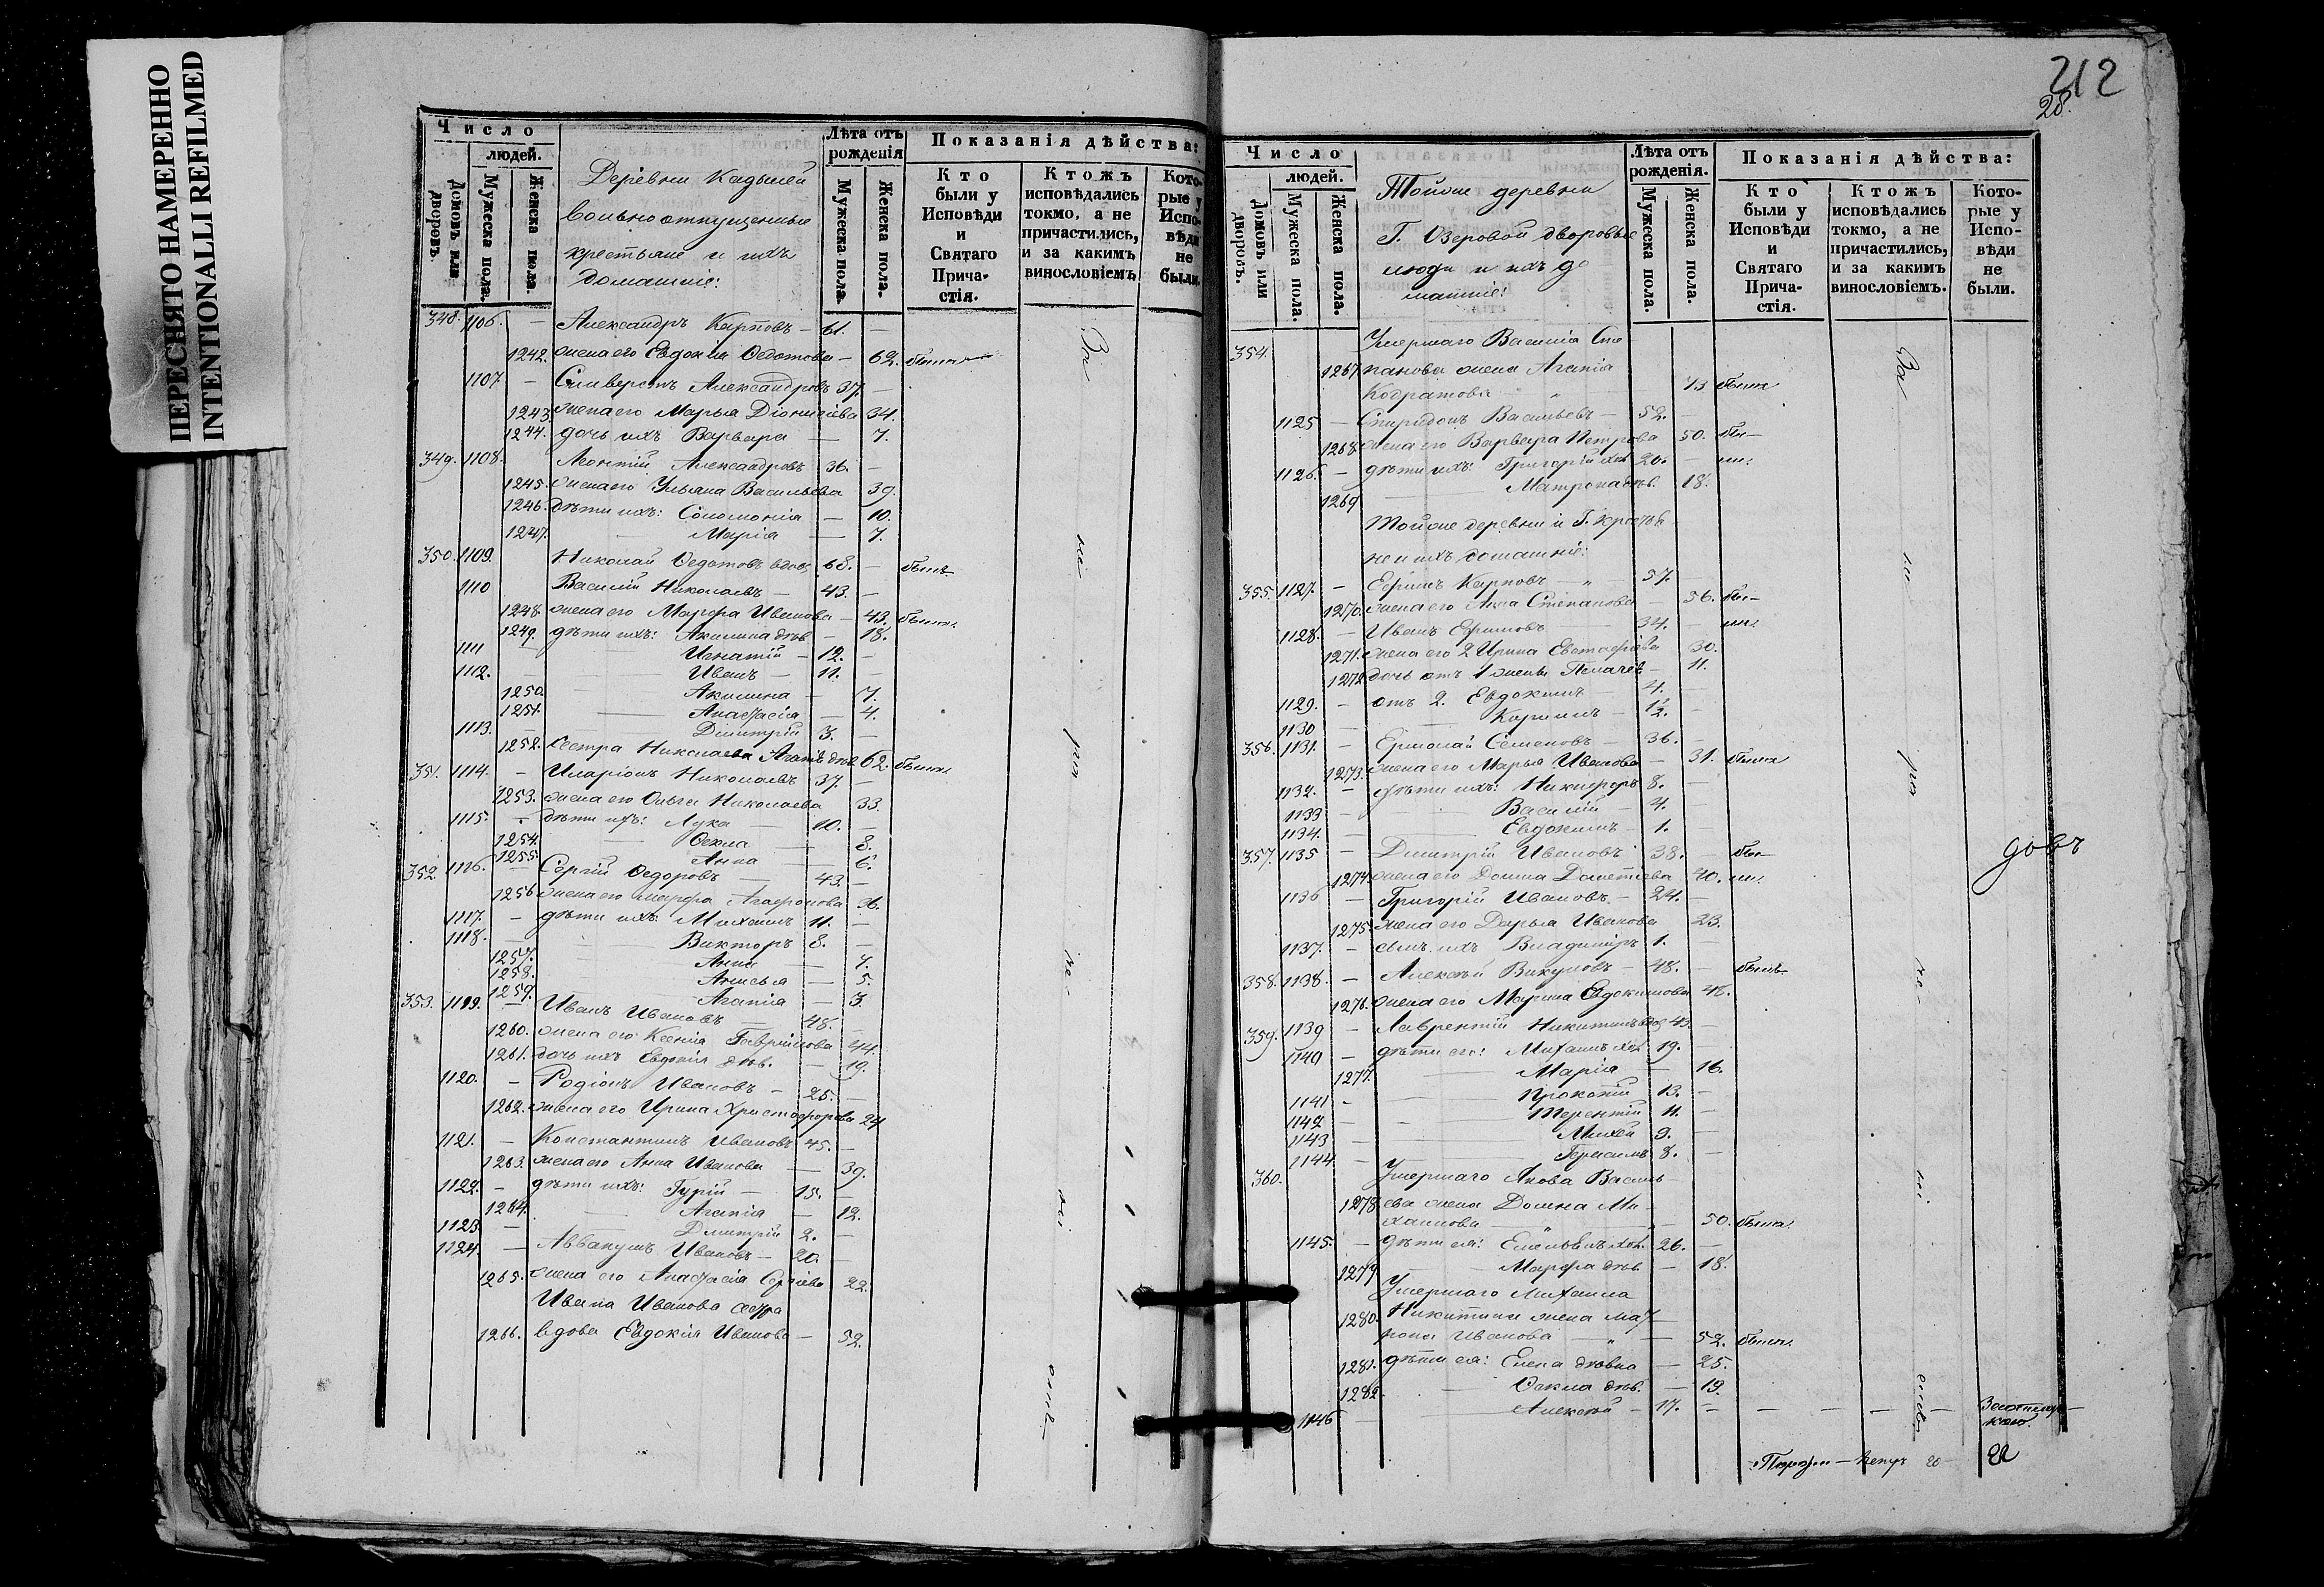 ПЕРЕСНЯТО НАМЕРЕННО
INTENTIONALLI REFILMED
Число
людей.
Домовъ или дворовъ.
Мужеска пола.
Женска пола.
Деревни
вольноотпущенные
крестьяне и ихъ
домашніе:
Лѣта отъ рожденія
Мужеска пола.
Женска пола.
Показанія дѣйства:
Кто были у Исповѣди и Святаго Причастія.
Ктожъ исповѣдались токмо, а не причастились, и за какимъ винословіемъ
Которые у Исповѣди не были.
348. 1106. — Александръ Карповъ — 61. —
1242. жена его Евдокія Ѳедотова — 62. были
1107. — Александровъ 37. —
1243. жена его Марья Діонисіева 34.
1244. дочь ихъ Варвара — 7.
349. 1108. Леонтій Александровъ 36. —
1245. жена его Ульяна Васильева 39.
1246. дѣти ихъ: Соломонія — 10.
1247. Марія — 7.
350. 1109. Николай Ѳедотовъ вдов. 68. — былъ
1110 Василій Николаевъ — 43. —
1248. жена его Марфа Иванова — 43. были
1249. дѣти ихъ: Акилина дѣв. — 18.
1111 — Игнатій — 12. —
1112. — Иванъ — 11. —
1250. Акилина — 7.
1251. Анастасія — 4.
1113. — Димитрій 3. —
1252. Сестра Николаева дѣв. 62. была
351. 1114. — Иларіонъ Николаевъ 37. —
1253. жена его Ольга Николаева 33.
1115. — дѣти ихъ: Лука — 10. —
1254. Ѳекла — 8.
1255. Анна — 6.
352. 1116. — Сергій Ѳедоровъ — 43. —
1256 жена его Марфа Агафонова 36.
1117. — дѣти ихъ: Михаилъ 11. —
1118. — Викторъ 8. —
1257. Анна — 7.
1258. Анисья — 5.
1259. Агапія — 3.
353. 1119. — Иванъ Ивановъ — 48. —
1260. жена его Ксенія Гавріилова 44.
1261. дочь ихъ дѣв. — 19.
1120. — Родіонъ Ивановъ — 25. —
1262. жена его Ирина Христофорова 24
1121. — Константинъ Ивановъ 45. —
1263. жена его Анна Иванова — 39.
1122. — дѣти ихъ: Гурій — 15. —
1264. Агапія — 12.
1123. — Дмитрій 2. —
1124. — Аввакумъ Ивановъ — 20. —
1265. жена его Анастасія Сергіева 22.
Ивана Иванова сестра
1266. вдова Евдокія Иванова — 52.
212
28.
Число
людей.
Домовъ или дворовъ.
Мужеска пола.
Женска пола.
Тойже деревни
Г. Озеровой дворовые
люди и ихъ до
машніе:
Лѣта отъ рожденія.
Мужеска пола.
Женска пола.
Показанія дѣйства:
Кто были у Исповѣди и Святаго Причастія.
Ктожъ исповѣдались токмо, а не причастились, и за какимъ винословіемъ.
Которые у Исповѣди не были.
354. Умершаго Василія Сте
1267 панова жена Агапія
Кодратова — 73 была
1125 — Спиридонъ Васильевъ — 52. —
1268. жена его Варвара Петрова 50. бы—
1126. — дѣти ихъ: Григорій хол. 20. — ли.
1269 Матрона дѣв. 18.
Тойже деревни и Г. крестья
не и ихъ домашніе:
355. 1127. — Ефимъ Карповъ — 57. —
1270. жена его Анна Степанова — 56. бы—
1128. — Иванъ Ефимовъ — 34. — ли.
1271. жена его 2 Ирина Евстафіева 30.
1272. дочь отъ 1 жены — 11.
1129. — отъ 2. Евдокимъ — 4. —
1130 — — 1/2. —
356. 1131. — Ермолай Семеновъ — 36. —
1273. жена его Марья Иванова — 31. были
1132. — дѣти ихъ: Никифоръ 8. —
1133 — Василій — 4. —
1134. — Евдокимъ — 1. —
357. 1135 — Димитрій Ивановъ 38. — бы—
1274. жена его Домна Дометіева 40. ли.
1136 — Григорій Ивановъ — 24. —
1275. жена его Дарья Иванова 23.
1137. — сынъ ихъ Владиміръ 1. —
358. 1138. — Алексѣй Викуловъ — 48. — былъ
1276. жена его Марина Евдокимова 46.
359. 1139 — Лаврентій Никитинъ вдов. 43. —
1140 — дѣти его: Михаилъ хол. 19. —
1277. Марія — 16.
1141 — Прокопій 13. —
1142 — Терентій 11. —
1143 — Михей 9. —
1144. — Герасимъ 8. —
360. Умершаго Якова Василь
1278 ева жена Домна Ми
хаилова — 50. была
1145. — дѣти ея: Емельянъ хол. 26. —
1279 Марфа дѣв. — 18.
Умершаго Михаила
1280. Никитина жена Мат
рона Иванова — 52. была
1281. дѣти ея: Елена дѣвка — 25.
1282. Ѳекла дѣв. — 19.
1146 — Алексѣй — 17. —
довъ